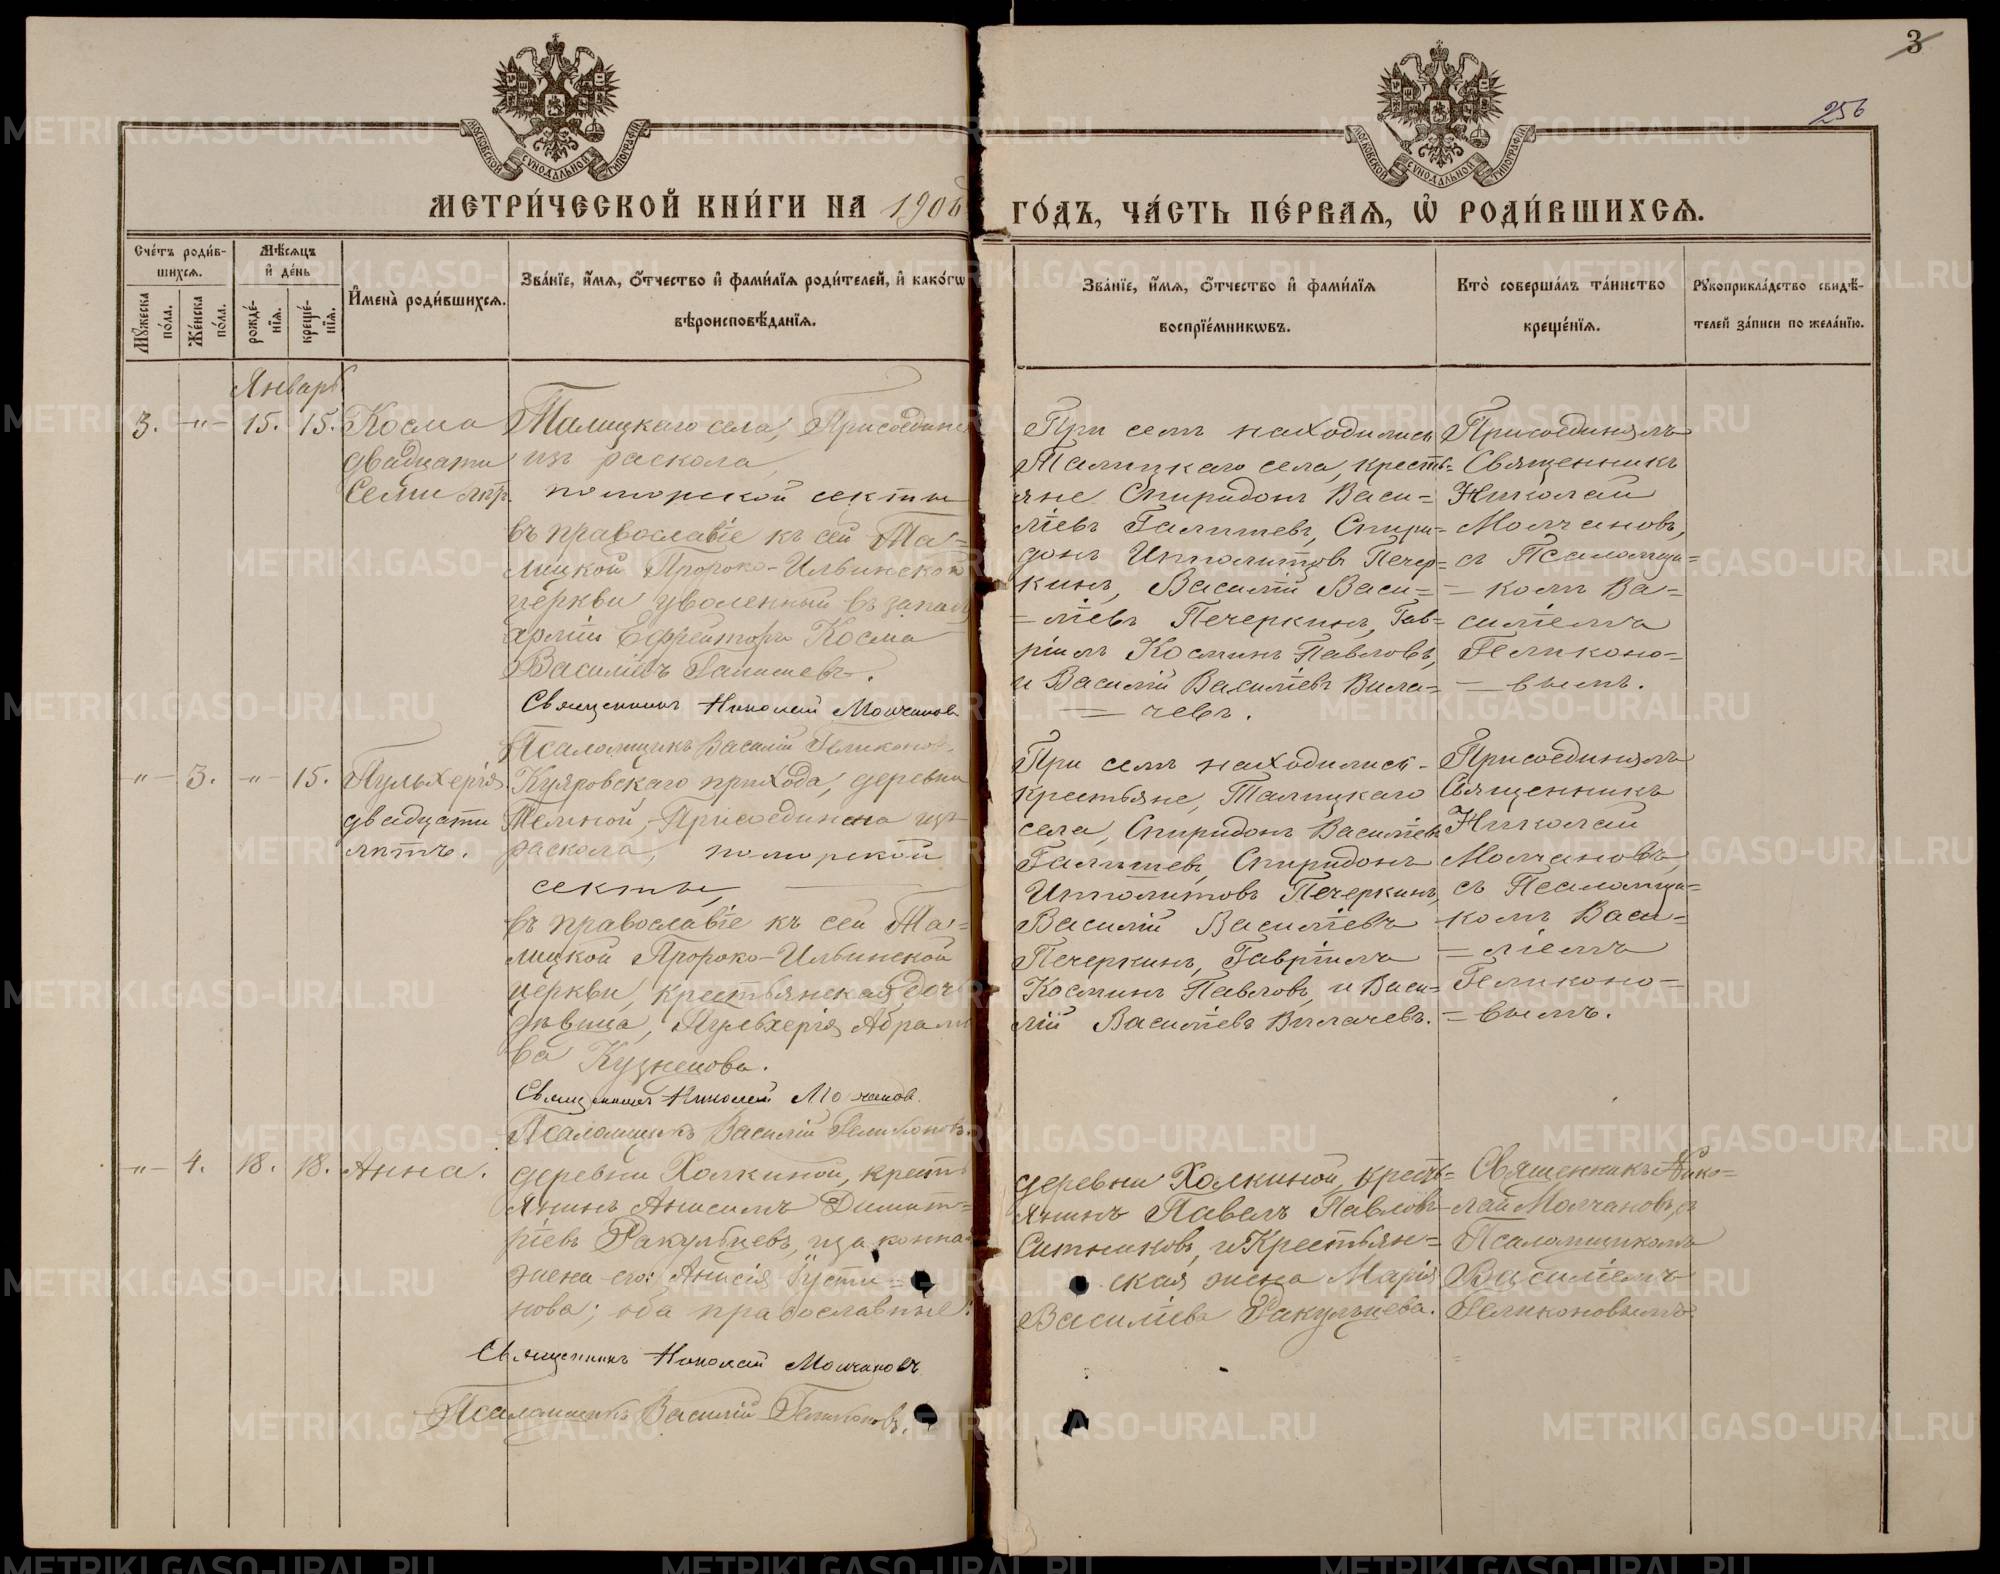 3
256
МОСКОВСКОЙ СѴНОДАЛЬНОЙ ТИПОГРАФІИ
МОСКОВСКОЙ СѴНОДАЛЬНОЙ ТИПОГРАФІИ
МЕТРИ́ЧЕСКОЙ КНИ́ГИ НА 1906
ГО́ДЪ, ЧА́СТЬ ПЕ́РВАЯ, Ѡ҆ РОДИ́ВШИХСЯ.
Сче́тъ роди́в-
шихся.
Мꙋ́жеска по́ла.
Же́нска по́ла.
Мѣ́сяцъ
и҆ де́нь
рожде́-
нїя.
креще́-
нїя.
И҆мена̀ роди́вшихся.
Зва́нїе, и҆́мя, ѻ҆́тчество и҆ фами́лїя роди́телей, и҆ како́гѡ
вѣроисповѣ́данїя.
Зва́нїе, и҆́мя, ѻ҆́тчество и҆ фами́лїя
воспрїе́мникѡвъ.
Кто̀ соверша́лъ та́инство
креще́нїя.
Рꙋкоприкла́дство свидѣ́-
телей за́писи по жела́нїю.
Январь
3. -"- 15. 15. Косма
двадцати
семи лѣт.
Талицкаго села, Присоедине
изъ раскола,
поморской секты
въ православіе къ сей Та=
лицкой Пророко-Ильинской
церкви уволенный въ запас
арміи Ефрейторъ Косма
Василіевъ Галишевъ.
Священникъ Николай Молчановъ
Псаломщикъ Василій Геликонов.
При семъ находились
Талицкаго села, кресть=
яне Спиридонъ Васи=
ліевъ Галишевъ, Спири=
донъ Ипполитовъ Печер=
кинъ, Василій Васи=
=ліевъ Печеркинъ, Гав=
ріилъ Косминъ Павловъ,
и Василій Василіевъ Вила=
— чевъ.
Присоединялъ
Священникъ
Николай
Молчановъ,
съ Псаломщи=
— комъ Ва=
силіемъ
Геликоно=
— вымъ.
-"- 3. -"- 15. Пульхерія
двадцати
лѣтъ.
Куяровскаго прихода, деревни
Темной, Присоединена изъ
раскола, поморской
секты,
въ православіе къ сей Та=
лицкой Пророко-Ильинской
церкви, крестьянская дочь
дѣвица, Пульхерія Абрамо
ва Кузнецова.
Священникъ Николай Молчанов.
Псаломщикъ Василій Геликоновъ.
При семъ находились-
крестьяне, Талицкаго
села, Спиридонъ Василіевъ
Галишевъ, Спиридонъ
Ипполитовъ Печеркинъ,
Василій Василіевъ
Печеркинъ, Гавріилъ
Косминъ Павловъ, и Васи=
лій Василіевъ Вилачевъ.
Присоединялъ
Священникъ
Николай
Молчановъ,
съ Псаломщи=
комъ Васи=
=ліемъ
Геликоно=
=вымъ.
-"- 4. 18. 18. Анна.
деревни Халкиной, кресть
янинъ Анисимъ Димит=
ріевъ Ракульцевъ, и законна
жена его: Анисія Іусти=
нова; оба православные:
Священникъ Николай Молчановъ
Псаломщикъ Василій Геликоновъ.
деревни Халкиной, кресть=
янинъ Павелъ Павловъ
Ситниковъ, и Крестьян=
ская жена Марія
Василіева Ракульцева.
Священникъ Нико=
лай Молчановъ, съ
Псаломщикомъ
Василіемъ
Геликоновымъ.
METRIKI.GASO-URAL.RU